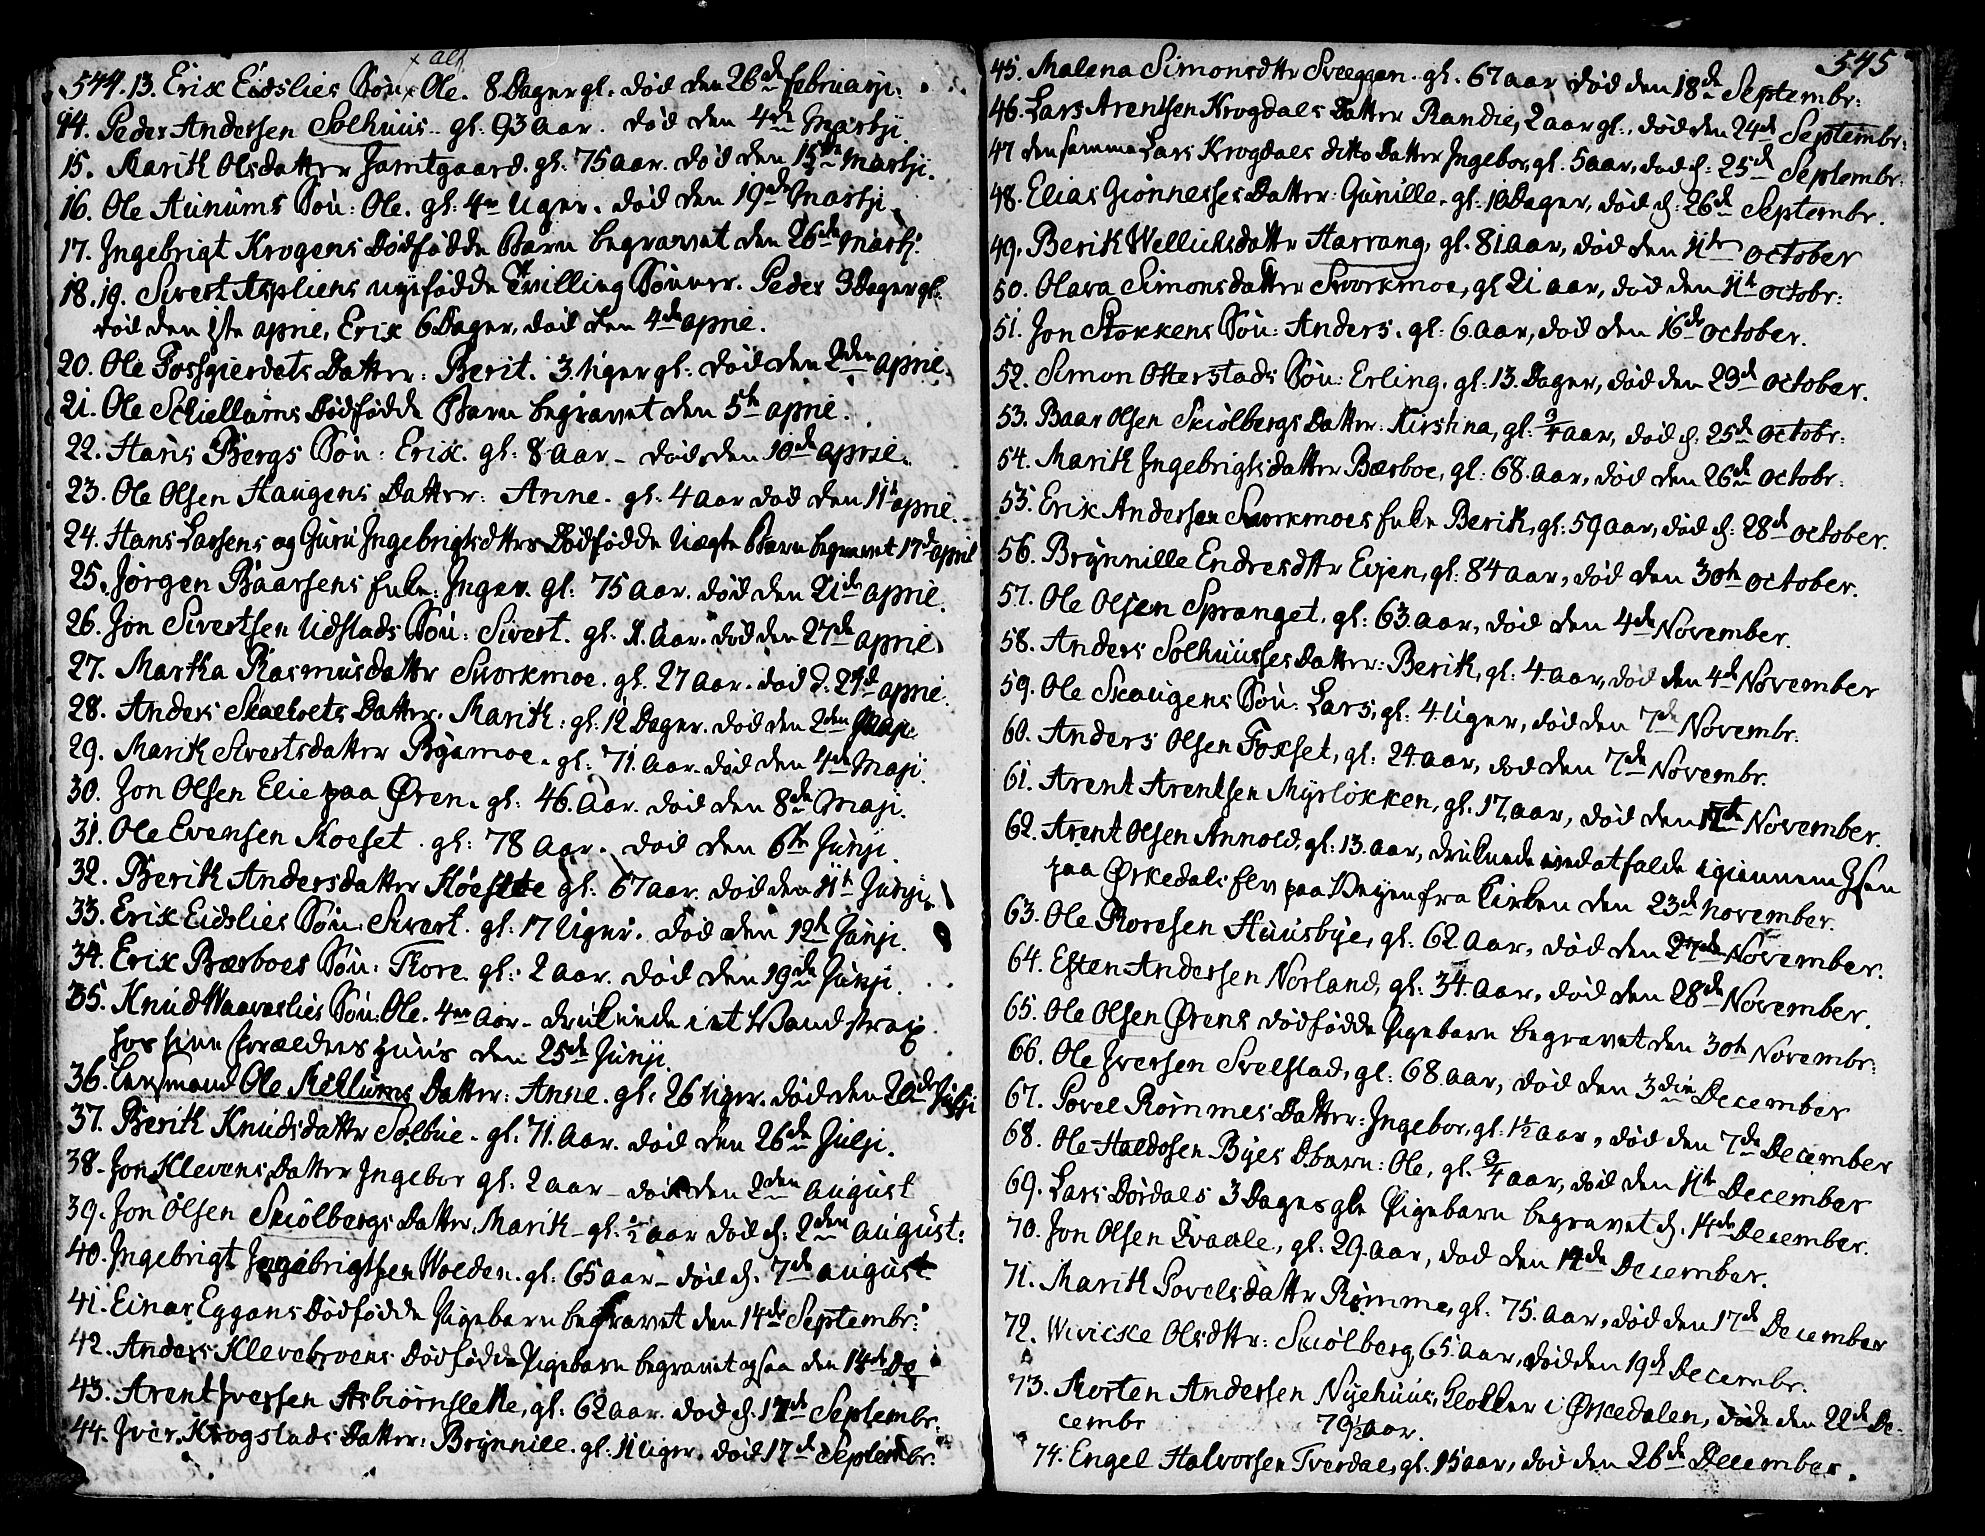 × alt
544. 13. Erix Eidslies Søn × Ole. 8 Dager gl. død den 26de Februarji.
14. Peder Andersen Solhuus. gl: 93 aar. død den 4de Martji.
15. Marith Olsdatter Jamtgaard. gl: 75 aar. død den 15de Martji.
16. Ole Aunums Søn: Ole. gl: 4re Uger. død den 19de Martji.
17. Ingebrigt Krogens Dødfødde Barn begravet den 26de Martj.
18. 19. Sivert Aspliens nyefødde Tvilling Sønner. Peder 3 Dager gl:
død den 1ste april, Erix 6 Dager, død den 4de april.
20. Ole Fossgierdets Datter: Berit. 3. Uger gl: død den 2den april.
21. Ole Schiellums Dødfødde Barn begravet den 5te april.
22. Hans Bergs Søn: Erix. gl: 8 aar - død den 10de april.
23. Ole Olsen Haugens Datter: Anne. gl: 4 aar død den 11te april.
24. Hans Larsens og Guru Ingebrigtsdttrs Dødfødde Uægte Barn begravet 17de april
25. Jørgen Baarsens Enke: Inger. gl: 75 aar. død den 21de april.
26. Jon Sivertsen Udstads Søn: Sivert. gl. 1. Aar. død den 27de april
27. Martha Rasmusdattr Sworkmoe. gl. 27 aar. død d. 29de april.
28. Anders Skaelvets Datter. Marith: gl: 12 Dager. død den 2den Maji.
29. Marith Sivertsdatter Byemoe. gl: 71. Aar. død den 4de Maji.
30. Jon Olsen Elie paa Øren. gl: 46. Aar. død den 8de Maji.
31. Ole Evensen Koeset. gl: 78 Aar. død den 6te Junji.
32. Berith Andersdatter gl: 67 aar. død den 11te Junji.
33. Erix Eidslies Søn: Sivert. gl: 17 Uger. død den 12te Junji.
34. Erix Bærboes Søn: Tore. gl: 2 aar. død den 19de Junji.
35. Knud Waavaslies Søn: Ole. 4re Aar - druknede i et Vand strax
hos sine Forælders Huus den 25de Junji.
36. Lensmand Ole Mællums Datter: Anne. gl: 26 Uger. død den 20de Julji
37. Berith Knudsdattr Solbue. gl. 71. Aar. død den 26de Julji.
38. Jon Klevens Datter Ingebor gl: 2 aar - død den 2den August
39. Jon Olsen Skiølbergs Datter. Marith - gl: ½ aar død d: 2den August:
40. Ingebrigt Ingebrigtsen Wolden. gl: 65 aar - død d. 7de August
41. Einar Eggans Dødfødde Pigebarn begravet den 14de Septembr:
42. Anders Klevebroens Dødfødde Pigebarn begravet ogsaa den 14de
43. Arent Iversen Asbiørnslette, gl: 62 aar. død d. 17de Septembr.
44. Iver Krogstads Datter: Brynnild. gl: 11 Uger. død 17de Septembr.
545
45. Malena Simonsdttr Sveeggen. gl: 67 aar død den 18de Septembr:
46. Lars Arentsen Krogdals Datter Randie, 2 aar gl:, død den 24de Septembr:
47 den samme Lars Krogdals ditto Datter Ingebor, gl: 5 aar, død d: 25de Septembr:
48. Elias Giønnesses Datter: Gunille, gl: 10 Dager, død d: 26de Septembr.
49. Berith Wellichsdattr Harrang, gl. 81 aar, død den 11te October
50. Olava Simonsdatter Sworkmoe, gl 21 aar, død den 11te Octobr:
51. Jon Stokkens Søn: Anders. gl: 6 aar, død den 16de October.
52. Simon Otterstads Søn: Erling, gl: 13. Dager, død den 23de October.
53. Baar Olsen Skiølbergs Datter: Kirstina, gl: ¾ aar, død d. 25de Octobr:
54. Marith Ingebrigtsdatter Bærboe, gl: 68. aar, død den 26de Octobr:
55. Erix Andersen Sworkmoes Enke Berith, gl: 59 aar, død d: 28de October.
56. Brynnille Endresdttr Evjen, gl: 84 aar, død den 30te October.
57. Ole Olsen Spranget. gl: 63. aar, død den 4de November.
58. Anders Solhuusses Datter: Berith, gl: 4. aar, død den 4de November
59. Ole Skaugens Søn: Lars, gl: 4. Uger, død den 7de Novembr:
60. Anders Olsen Foxset, gl: 24 aar, død den 7de Novembr.
61. Arent Arentsen Myrløkken, gl. 17, aar, død den November.
62. Arent Olsen Annold, gl: 13. aar, druknede ved at falde igiennem Isen
paa Ørkedals Elv paa Veyen fra Kirken den 23de November.
63. Ole Roresen Huusbye, gl: 62 aar, død den 27de November.
64. Esten Andersen Norland, gl: 34. aar, død den 28de November.
65. Ole Olsen Ørens dødfødde Pigebarn begravet den 30te Novembr:
66. Ole Iversen Svelstad, gl: 68 aar, død den 3die December
67. Povel Rømmes Datter: Ingebor, gl: 1½ aar, død den 7de December
68. Ole Haldosen Byes D.barn: Ole, gl: ¾ aar, død den 11te December
69. Lars Dørdals 3 Dages gle Pigebarn begravet d. 14de December.
70. Jon Olsen Qvaale, gl: 29. aar, død den 14de December.
71. Marith Povelsdattr Rømme, gl: 75. aar, død den 17de December
72. Wivicke Olsdttr: Skiølberg, 65. aar, død den 19de Decembr.
73. Morten Andersen Nyehuus, Klokker i Ørkedalen, døde den 22de De-
cembr 79½ aar.
74. Engel Halvorsen Tverdal, gl: 15 aar, død den 26de December.